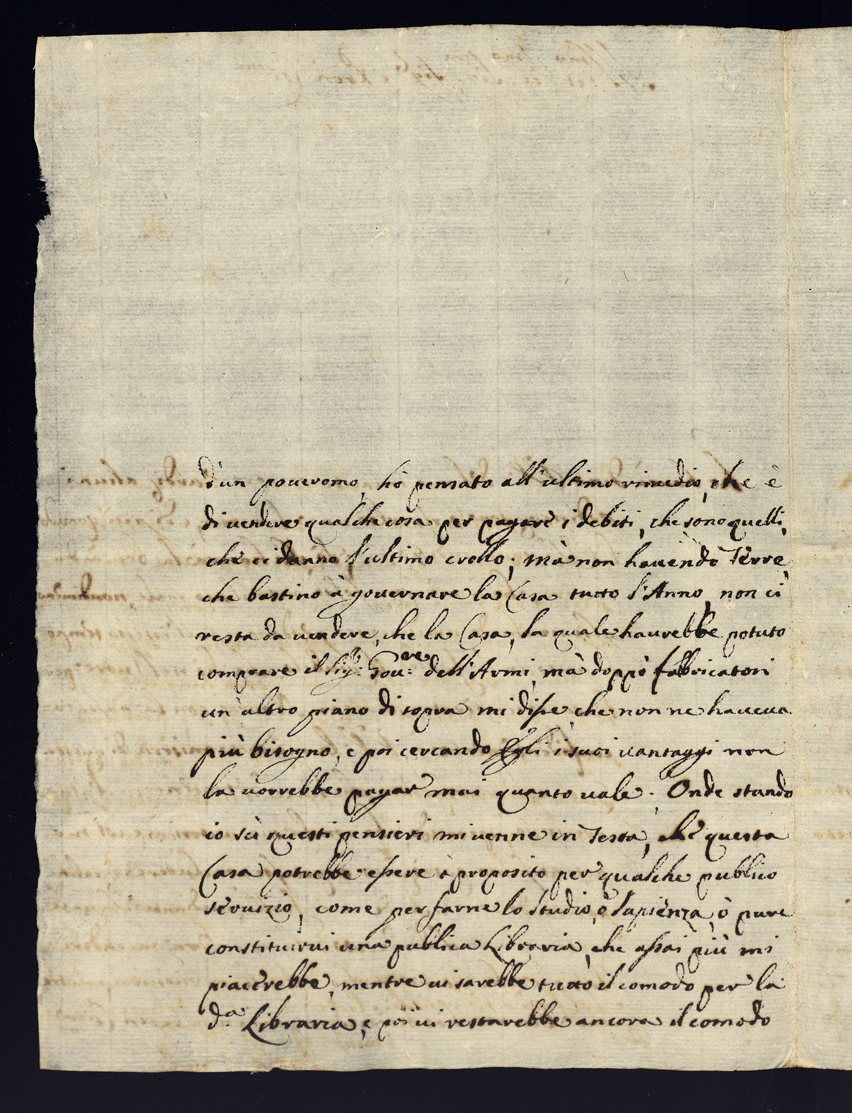 d'un pover'omo, hò pensato all'ultimo rimedio, che è
di vendere qualche cosa per pagare i debiti, che sono quelli,
che ci danno l'ultimo crollo; mà non havendo Terre,
che bastino à governare la Casa tutto l'Anno, non ci
resta da vendere, che la Casa, la quale haurebbe potuto
comprare il Sig:r Gou:re dell'Armi, mà doppò fabbricatori
un'altro piano di sopra mi disse, che non ne haveva
più bisogno, e poi cercando Egli i suoi vantaggi non
la vorrebbe pagar mai quanto vale. Onde stando
io sù questi pensieri mi venne in Testa, che questa
Casa potrebbe essere à proposito per qualche publico
servizio, come per farne lo studio, ò Sapienza, ò pure
constituirvi una publica Libraria, che assai più mi
piacerebbe, mentre vi sarebbe tutto il comodo per la
d.a Libraria, e poi vi restarebbe ancora il comodo